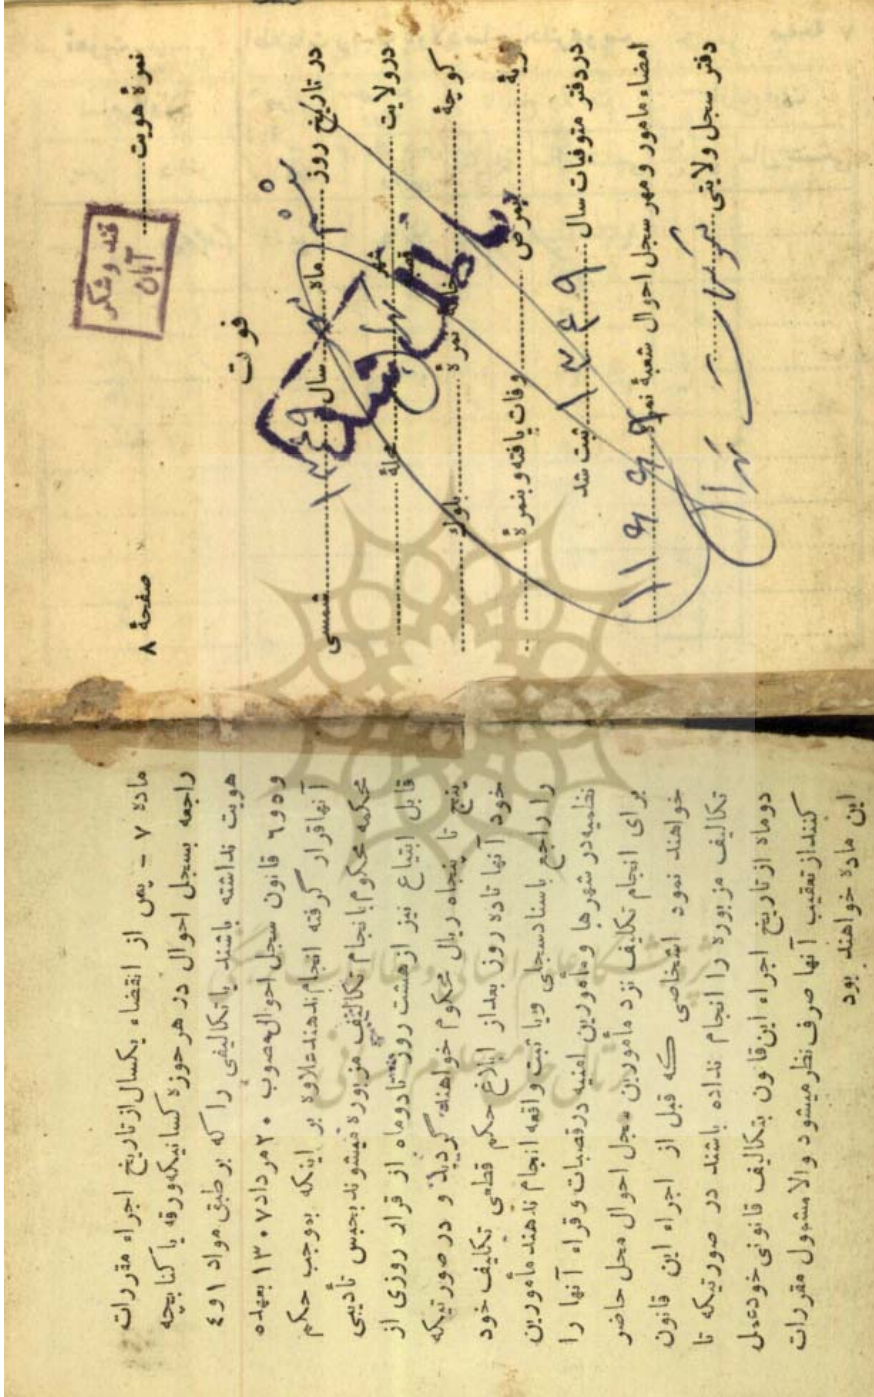 صفحهٔ ۸
نمرهٔ هویت
قند و شکر
آبان
فوت
در تاریخ روز ماه سال ۱۳۴۹ شمسی
در ولایت شهر محلهٔ
کوچهٔ خانه نمرهٔ بلوک
قریهٔ بمرض وفات یافته و بنمرهٔ
در دفتر متوفیات سال ۱۳۴۹ ثبت شد
امضاء مامور و مهر سجل احوال شعبهٔ نمرهٔ
دفتر سجل ولایتی تهران
باطل شد
ماده ۷ - پس از انقضاء یکسال از تاریخ اجراء مقررات
راجعه بسجل احوال در هر حوزه کسانیکه ورقه یا کتابچه
هویت نداشته باشند یا تکالیفی را که بر طبق مواد ۱ و ۴
و ۵ و ۶ قانون سجل احوال مصوب ۲۰ مرداد ۱۳۰۷ بعهده
آنها قرار گرفته انجام ندهند علاوه بر اینکه بموجب حکم
محکمه محکوم بانجام تکالیف مزبوره میشوند بحبس تأدیبی
قابل ابتیاع نیز از هشت روز تا دو ماه از قرار روزی از
پنج تا پنجاه ریال محکوم خواهند گردید و در صورتیکه
خود آنها تا ده روز بعد از ابلاغ حکم قطعی تکلیف خود
را راجع باسناد سجلی و یا ثبت واقعه انجام ندهند مأمورین
نظمیه در شهرها و مأمورین امنیه در قصبات و قراء آنها را
برای انجام تکلیف نزد مأمورین سجل احوال محل حاضر
خواهند نمود اشخاصی که قبل از اجراء این قانون
تکالیف مزبوره را انجام نداده باشند در صورتیکه تا
دو ماه از تاریخ اجراء این قانون بتکالیف قانونی خود عمل
کنند از تعقیب آنها صرف نظر میشود و الا مشمول مقررات
این ماده خواهند بود